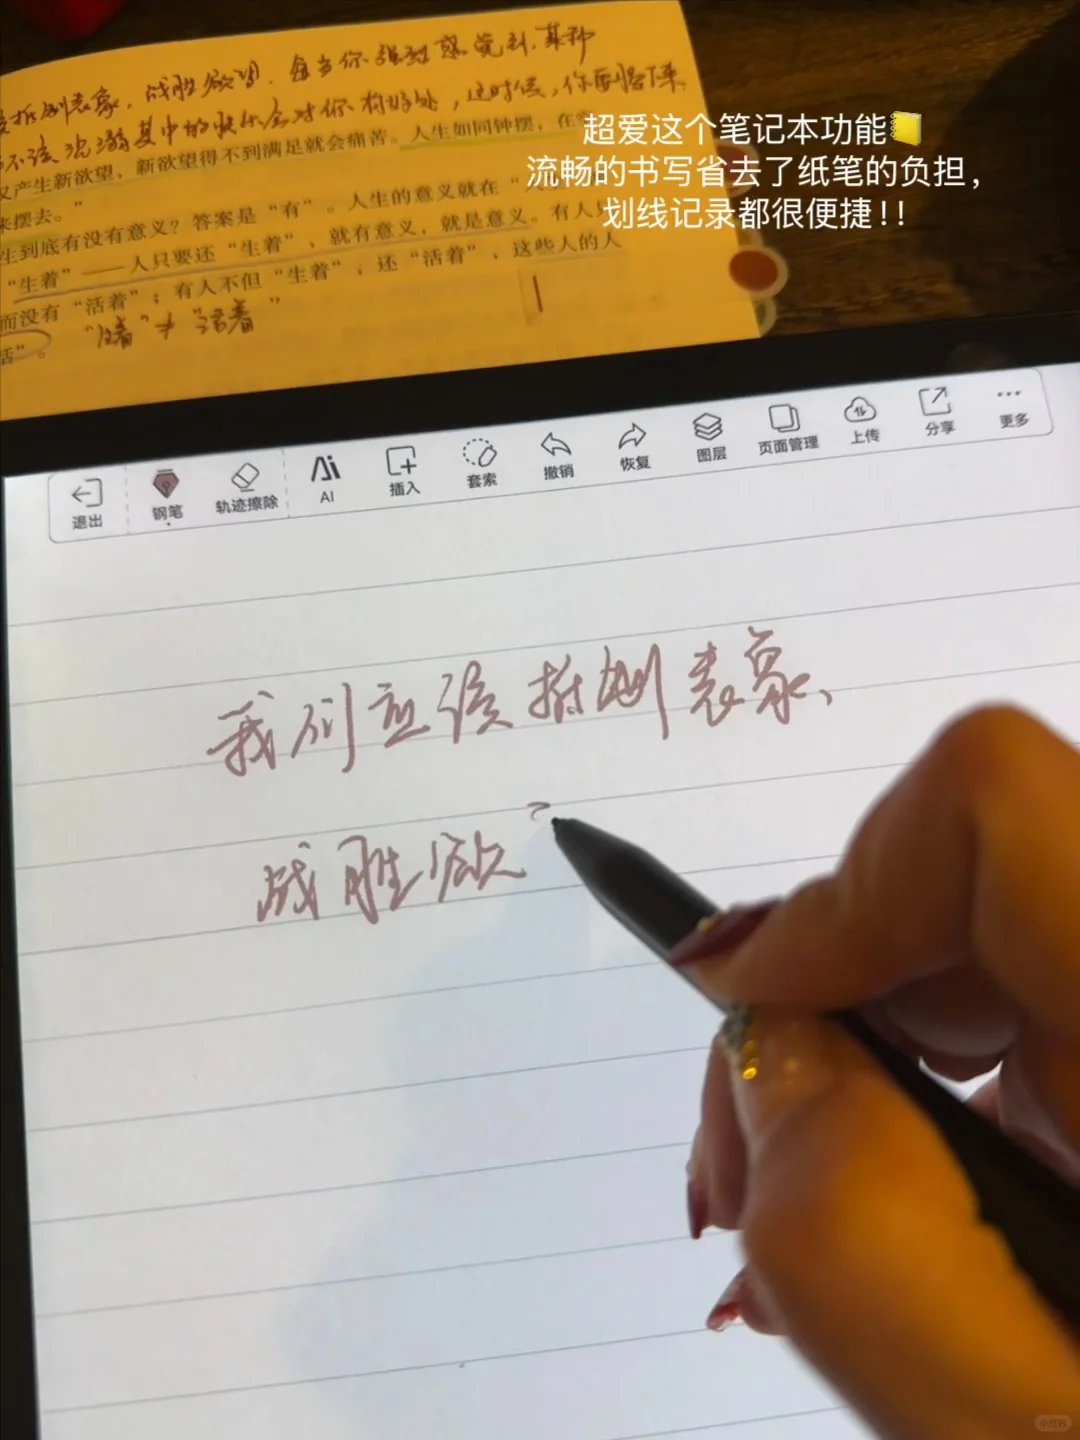 拆刎表象，战胜欲望。每当你强烈感觉到，某种
不该沉溺其中的快乐会对你有好处，这时候，你要
又产生新欲望，新欲望得不到满足就会痛苦。人生如同钟摆，在
来摆去。”
生到底有没有意义？答案是“有”。人生的意义就在“
“生着”——人只要还“生着”，就有意义，就是意义。有人只
而没有“活着”；有人不但“生着”，还“活着”，这些人的人
活”。
“生着”≠“活着”
超爱这个笔记本功能📒
流畅的书写省去了纸笔的负担，
划线记录都很便捷！！
退出 钢笔 轨迹擦除 AI 插入 套索 撤销 恢复 图层 页面管理 上传 分享 更多
我们应该 表象、
战胜欲
小红书